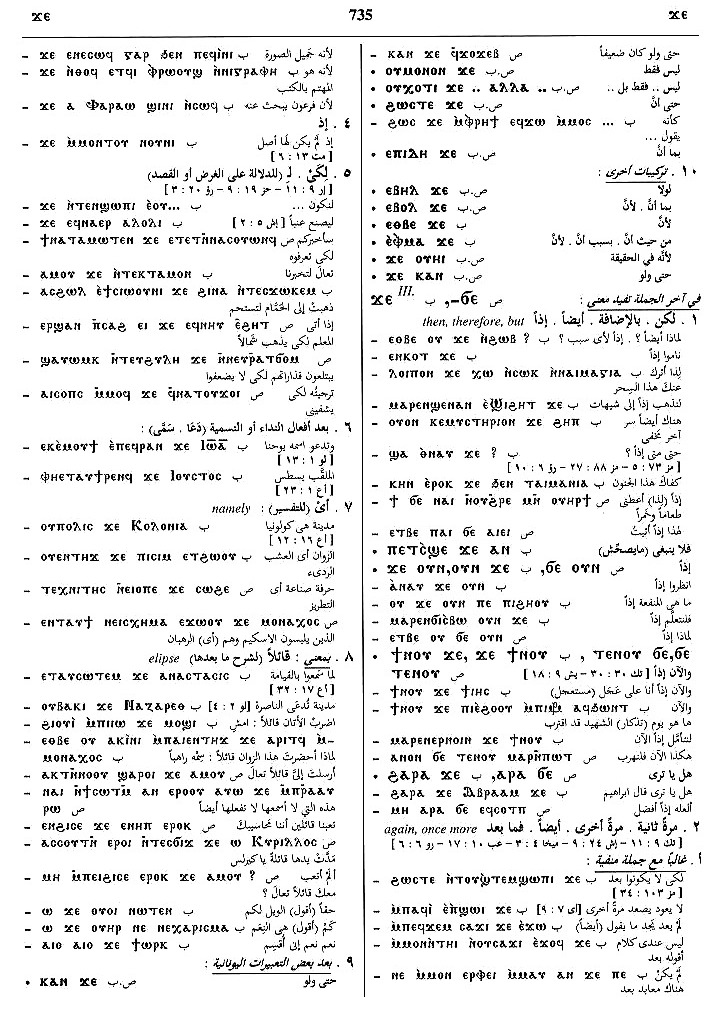 ϫⲉ 735 ϫⲉ
– ϫⲉ ⲉⲛⲉⲥⲱϥ ⲅⲁⲣ ϧⲉⲛ ⲡⲉϥⲓⲛⲓ ب لأنه جميل الصورة
– ϫⲉ ⲛ̀ⲑⲟϥ ⲉⲧϥⲓ ⲫⲣⲱⲟⲩϣ ⲛ̀ⲛⲓⲅⲣⲁⲫⲏ ب لأنه هو
المهتم بالكتب
– ϫⲉ ⲁ ⲫⲁⲣⲁⲱ ϣⲓⲛⲓ ⲛ̀ⲥⲱϥ ب لأن فرعون يبحث عنه
٤ . إذ
– ϫⲉ ⲙ̀ⲙⲟⲛⲧⲟⲩ ⲛⲟⲩⲛⲓ ب إذ لم يكن لها أصل
[مت ١٣ : ٦]
٥ . لِكَىْ . لِـ (للدلالة على الغرض أو القصد)
[لو ٩ : ١١ – حز ١٩ : ٩ – رؤ ٢٠ : ٣]
– ϫⲉ ⲛ̀ⲧⲉⲛϣⲱⲡⲓ ⲉⲟⲩ... ب لنكون ...
– ϫⲉ ⲉϥⲛⲁⲉⲣ ⲁⲗⲟⲗⲓ ب ليصنع عنباً [إش ٥ : ٢]
– ϯⲛⲁⲧⲁⲙⲱⲧⲉⲛ ϫⲉ ⲉⲧⲉⲧⲛ̄ⲛⲁⲥⲟⲩⲱⲛϥ ص سأخبركم
لكى تعرفوه
– ⲁⲙⲟⲩ ϫⲉ ⲛ̀ⲧⲉⲕⲧⲁⲙⲟⲛ ب تعال لتخبرنا
– ⲁⲥϩⲱⲗ ⲉ̀ϯⲥⲓⲱⲟⲩⲛⲓ ϫⲉ ϩⲓⲛⲁ ⲛ̀ⲧⲉⲥϫⲱⲕⲉⲙ ب
ذهبت إلى الحمّام لتستحم
– ⲉⲣϣⲁⲛ ⲡⲥⲁϩ ⲉⲓ ϫⲉ ⲉϥⲛⲏⲩ ⲉ̀ϩⲏⲧ ص إذا أتى
المعلم لكى يذهب شمالاً
– ϣⲁⲩⲱⲙⲕ ⲛ̄ⲧⲉⲩϩⲗⲏ ϫⲉ ⲛ̄ⲛⲉⲩⲣ̄ⲁⲧϭⲟⲙ ص
يبتلعون قذاراتهم لكى لا يضعفوا
– ⲁⲓⲥⲟⲡⲥ ⲙ̄ⲙⲟϥ ϫⲉ ϥⲛⲁⲧⲟⲩϫⲟⲓ ص ترجيتُه لكى
يشفينى
٦ . بعد أفعال النداء أو التسمية (دَعَا ، سَمَّى) :
– ⲉⲕⲉ̀ⲙⲟⲩϯ ⲉ̀ⲡⲉϥⲣⲁⲛ ϫⲉ ⲓⲱ̅ⲁ̅ ب وتدعو اسمه يوحنا
[لو ١ : ١٣]
– ⲫⲏⲉⲧⲁⲩϯⲣⲉⲛϥ ϫⲉ ⲓⲟⲩⲥⲧⲟⲥ ب الملقب يسطس
[أع ١ : ٢٣]
٧ . أَىْ (للتفسير) : namely
– ⲟⲩⲡⲟⲗⲓⲥ ϫⲉ ⲕⲟⲗⲟⲛⲓⲁ ب مدينة هى كولونيا
[أع ١٦ : ١٢]
– ⲟⲩⲉⲛⲧⲏϫ ϫⲉ ⲡⲓⲥⲓⲙ ⲉⲧϩⲱⲟⲩ ب الزوان أى العشب
الردىء
– ⲧⲉⲭⲛⲓⲧⲏⲥ ⲛ̄ⲉⲓⲟⲡⲉ ϫⲉ ⲥⲱϣⲉ ص حرفة صناعة أى
التطريز
– ⲉⲛⲧⲁⲩϯ ⲛⲉⲓⲥⲭⲏⲙⲁ ⲉϫⲱⲟⲩ ϫⲉ ⲙⲟⲛⲁⲭⲟⲥ ص
الذين يلبسون الاسكيم وهم (أى) الرهبان
٨ . بمعنى : قائلاً (لشرح ما بعدها) elipse
– ⲉⲧⲁⲩⲥⲱⲧⲉⲙ ϫⲉ ⲁⲛⲁⲥⲧⲁⲥⲓⲥ ب لما سمعوا بالقيامة
[أع ١٧ : ٣٢]
– ⲟⲩⲃⲁⲕⲓ ϫⲉ ⲛⲁⲍⲁⲣⲉⲑ ب مدينة تُدعَى الناصرة [لو ٢ : ٤]
– ϩⲓⲟⲩⲓ̀ ⲙ̀ⲡⲓⲓⲱ ϫⲉ ⲙⲟϣⲓ ب اضرب الأتان قائلاً : امش
– ⲉⲑⲃⲉ ⲟⲩ ⲁⲕⲓ̀ⲛⲓ ⲙ̀ⲡⲁⲓⲉⲛⲧⲏϫ ϫⲉ ⲁⲣⲓⲧϥ ⲙ̀–
ⲙⲟⲛⲁⲭⲟⲥ ب لماذا أحضرتَ هذا الزوان قائلاً : سمّه راهباً
– ⲁⲕⲧⲛ̄ⲛⲟⲟⲩ ϣⲁⲣⲟⲓ ϫⲉ ⲁⲙⲟⲩ ص أرسلت إلىَّ قائلاً تعال
– ⲛⲁⲓ ⲛ̄ϯⲥⲱⲧⲙ̄ ⲁⲛ ⲉⲣⲟⲟⲩ ⲁⲩⲱ ϫⲉ ⲙ̄ⲡⲣ̄ⲁⲁⲩ
ⲣⲱ ص هذه التى لا أسمعها لا تفعلها أيضاً
– ⲉⲛϩⲓⲥⲉ ϫⲉ ⲉⲛⲏⲡ ⲉⲣⲟⲕ ص تعبنا قائلين أننا نحاسبك
– ⲁⲥⲥⲟⲩⲧⲛ̄ ⲉⲣⲟⲓ ⲛ̄ⲧⲉⲥϭⲓϫ ϫⲉ ⲱ ⲕⲩⲣⲓⲗⲗⲟⲥ ص
مَدَّت يدها قائلة يا كيرلس
– ⲙⲏ ⲙ̄ⲡⲉⲓϩⲓⲥⲉ ⲉⲣⲟⲕ ϫⲉ ⲁⲙⲟⲩ ? ص ألم أتعب
معك قائلاً تعالَ ؟
– ⲱ ϫⲉ ⲟⲩⲟⲓ ⲛⲱⲧⲉⲛ ب حقاً (أقول) الويل لكم
– ⲱ ϫⲉ ⲟⲩⲏⲣ ⲛⲉ ⲛⲉϫⲁⲣⲓⲥⲙⲁ ب كَمْ (أقول) هى النِعَم
– ⲁⲓⲟ ⲁⲓⲟ ϫⲉ ϯⲱⲣⲕ ب نعم نعم إنى أُقسِم
٩ . بعد بعض التعبيرات اليونانية :
• ⲕⲁⲛ ϫⲉ ص.ب حتى ولو
– ⲕⲁⲛ ϫⲉ ϥϫⲟϫⲉⲃ ص حتى ولو كان ضعيفاً
• ⲟⲩⲙⲟⲛⲟⲛ ϫⲉ ص.ب ليس فقط
• ⲟⲩⲭⲟⲧⲓ ϫⲉ .. ⲁⲗⲗⲁ .. ص.ب ليس .. فقط بل ..
• ϩⲱⲥⲧⲉ ϫⲉ ص.ب حتى أنَّ
– ϩⲱⲥ ϫⲉ ⲙ̀ⲫⲣⲏϯ ⲉϥϫⲱ ⲙ̀ⲙⲟⲥ ... ب كأنه
يقول ...
• ⲉⲡⲓⲇⲏ ϫⲉ ص.ب بما أنَّ
١٠ . تركيبات أخرى :
• ⲉⲃⲏⲗ ϫⲉ ص.ب لولا
• ⲉⲃⲟⲗ ϫⲉ ص.ب بما أنَّ . لأنَّ
• ⲉⲑⲃⲉ ϫⲉ ب لأنَّ
• ⲉ̀ⲫⲙⲁ ϫⲉ ب من حيث أن . بسبب أنَّ . لأنَّ
• ϫⲉ ⲟⲩⲏⲓ ص.ب لأنَّه فى الحقيقة
• ϫⲉ ⲕⲁⲛ ص.ب حتى ولو
ϫⲉ III. ب ,–ϭⲉ ص فى آخر الجملة تفيد معنى :
١ . لكن . بالإضافة . أيضاً . إذاً then, therefore, but
– ⲉⲑⲃⲉ ⲟⲩ ϫⲉ ⲛ̀ϩⲱⲃ ? ب لماذا أيضاً ؟ . إذاً لأى سبب ؟
– ⲉⲛⲕⲟⲧ ϫⲉ ب ناموا إذاً
– ⲗⲟⲓⲡⲟⲛ ϫⲉ ⲭⲱ ⲛ̀ⲥⲱⲕ ⲛ̀ⲛⲁⲓⲙⲁⲅⲓⲁ ب إذاً اترك
عنك هذا السحر
– ⲙⲁⲣⲉⲛϣⲉⲛⲁⲛ ⲉ̀ϢⲓⲏⲎⲧ ϫⲉ ب لنذهب إذاً إلى شيهات
– ⲟⲩⲟⲛ ⲕⲉⲙⲩⲥⲧⲏⲣⲓⲟⲛ ϫⲉ ϩⲏⲡ ب هناك أيضاً سر
آخر مخفى
– ϣⲁ ⲑⲛⲁⲩ ϫⲉ ? ب حتى متى إذاً ؟
[مز ٧٣ : ٥ – مز ٨٨ : ٢٧ – رؤ ٦ : ١٠]
– ⲕⲏⲛ ⲉ̀ⲣⲟⲕ ϫⲉ ϧⲉⲛ ⲧⲁⲓⲙⲁⲛⲓⲁ ب كفاك هذا الجنون
– ϯ ϭⲉ ⲛⲁⲓ ⲛ̄ⲟⲩϩⲣⲉ ⲙⲛ̄ ⲟⲩⲏⲣⲡ ص إذاً (لذا) أعطنى
طعاماً وخمراً
– ⲉⲧⲃⲉ ⲡⲁⲓ ϭⲉ ⲁⲓⲉⲓ ص لهذا إذاً أتيتُ
• ⲡⲉⲧⲥ̀ϣⲉ ϫⲉ ⲁⲛ ب فلا ينبغى (مايصحّش)
• ϫⲉ ⲟⲩⲛ,ⲟⲩⲛ ϫⲉ ب ,ϭⲉ ⲟⲩⲛ ص إذاً
– ⲁ̀ⲛⲁⲩ ϫⲉ ⲟⲩⲛ ب انظروا إذاً
– ⲟⲩ ϫⲉ ⲟⲩⲛ ⲡⲉ ⲡⲓϩⲏⲟⲩ ب ما هى المنفعة إذاً
– ⲙⲁⲣⲉⲛϭⲓⲥⲃⲱ ⲟⲩⲛ ϫⲉ ب فلنتعلَّم إذاً
– ⲉⲧⲃⲉ ⲟⲩ ϭⲉ ⲟⲩⲛ ص لماذا إذاً
• ϯⲛⲟⲩ ϫⲉ, ϫⲉ ϯⲛⲟⲩ ب , ⲧⲉⲛⲟⲩ ϭⲉ,ϭⲉ
ⲧⲉⲛⲟⲩ ص والآن إذاً [تك ٣٠ : ٣٠ – يش ٩ : ١٨]
– ϯⲛⲟⲩ ϫⲉ ϯⲓⲏⲥ ب والآن إذاً أنا على عَجَل (مستعجل)
– ϯⲛⲟⲩ ϫⲉ ⲡⲓⲉϩⲟⲟⲩ ⲙ̀ⲡⲓⲙ̅ⲣ̅ ⲁϥϧⲱⲛⲧ ب والآن
ها هو يوم (تذكار) الشهيد قد اقترب
– ⲙⲁⲣⲉⲛⲉⲣⲛⲟⲓⲛ ϫⲉ ϯⲛⲟⲩ ب لنتأمَّل إذاً الآن
– ⲁⲛⲟⲛ ϭⲉ ⲧⲉⲛⲟⲩ ⲙⲁⲣⲛ̄ⲡⲱⲧ ص هكذا الآن فلنهرب
• ϩⲁⲣⲁ ϫⲉ ب ,ⲁⲣⲁ ϭⲉ ص هل يا ترى
– ϩⲁⲣⲁ ϫⲉ ⲁ̀ⲃⲣⲁⲁⲙ ϫⲉ ب هل يا ترى قال ابراهيم
– ⲙⲏ ⲁⲣⲁ ϭⲉ ⲉϥⲥⲟⲧⲡ ص ألعله إذاً أفضل
٢ . مرةً ثانية . مرةً أخرى . أيضاً . فما بعد again, once more
[تك ٩ : ١١ – إش ٢٤ : ٩ – ميخا ٤ : ٣ – عب ١٠ : ١٧ – رو ٦ : ٦]
أ . غالباً مع جملة منفية :
– ϩⲱⲥⲧⲉ ⲛ̀ⲧⲟⲩϣⲧⲉⲙϣⲱⲡⲓ ϫⲉ ب لكى لا يكونوا بعد
[مز ١٠٣ : ٣٤]
– ⲙ̀ⲡⲁϥⲓ̀ ⲉ̀ⲡϣⲱⲓ ϫⲉ ب لا يعود يصعد مرةً أخرى [أى ٧ : ٩]
– ⲙ̀ⲡⲉϥϫⲉⲙ ⲥⲁϫⲓ ϫⲉ ⲉ̀ϫⲱ ب لم يعد يجد ما يقول (أيضاً)
– ⲙ̀ⲙⲟⲛⲧ̀ⲏⲓ ⲛ̀ⲟⲩⲥⲁϫⲓ ⲉ̀ϫⲟϥ ϫⲉ ب ليس عندى كلام
أقوله بعد
– ⲛⲉ ⲙ̀ⲙⲟⲛ ⲉⲣⲫⲉⲓ ⲙ̀ⲙⲁⲩ ⲁⲛ ϫⲉ ⲡⲉ ب لم يَكُنْ
هناك معابد بعد